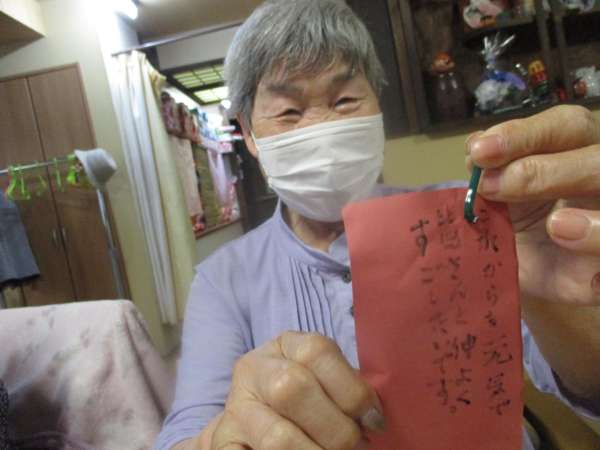 これからも元気で
皆さんと仲よく
すごしたいです。